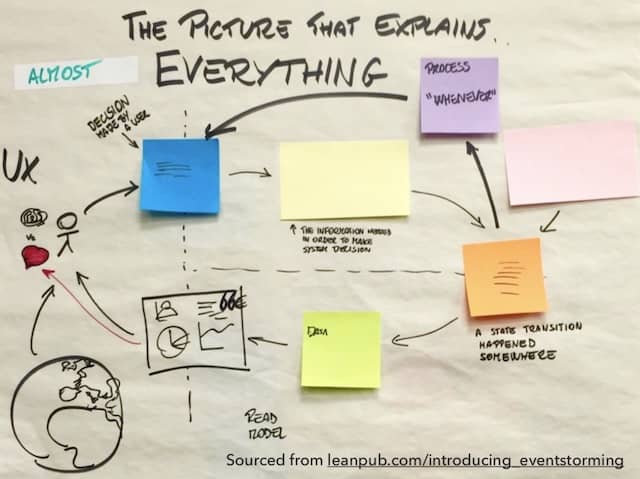 THE PICTURE THAT EXPLAINS
ALMOST
EVERYTHING
PROCESS
"WHENEVER"
DECISION
MADE BY
A USER
UX
VS
↑ THE INFORMATION NEEDED
IN ORDER TO MAKE
SYSTEM DECISION
DATA
A STATE TRANSITION
HAPPENED
SOMEWHERE
66€
READ
MODEL
Sourced from leanpub.com/introducing_eventstorming